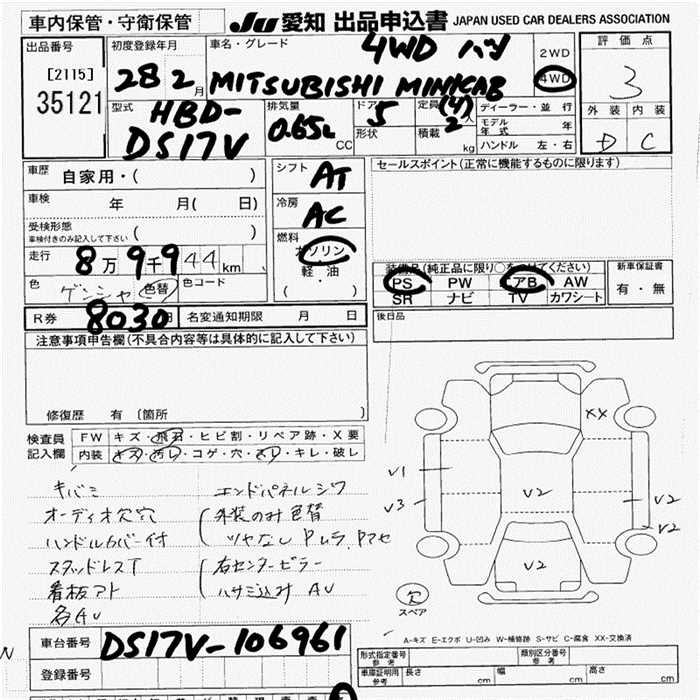 車内保管・守衛保管
JU 愛知 出品申込書 JAPAN USED CAR DEALERS ASSOCIATION
出品番号
[2115]
35121
初度登録年月
28 2月
車名・グレード
4WD バン
MITSUBISHI MINICAB
2WD
4WD
評価点
3
外装 内装
D C
型式
HBD-
DS17V
排気量
0.65L
CC
ドア
5
形状
定員 (4)人
積載 2
kg
ディーラー・並行
モデル年式 年
ハンドル 左・右
車歴
自家用・( )
車検 年 月( 日)
受検形態
車検付きのみ記入して下さい ( )
走行
8万9千944km
色
色替
色コード
シフト
AT
冷房
AC
燃料
ガソリン
軽・油
( )
セールスポイント(正常に機能するものに限ります)
装備品(純正品に限り○をつけてください)
PS PW エアB AW
SR ナビ TV カワシート
新車保証書
有・無
後日品
R券 8030 名変通知期限 月 日
注意事項申告欄(不具合内容等は具体的に記入して下さい)
修復歴 有 〔箇所
検査員
記入欄
FW キズ・飛石・ヒビ割・リペア跡・X要
内装 キズ・汚レ・コゲ・穴・スレ・キレ・破レ
キバミ
オーディオ欠穴
ハンドルカバー付
スタッドレスT
看板アト
名AU
エンドパネルシワ
外装のみ色替
ツヤなし Pムラ、Pマセ
右センターピラー
ハサミ込み AU
XX
V1
V3
V2
V2
V2
V2
欠
スペア
A-キズ E-エクボ U-凹み W-補修跡 S-サビ C-腐食 XX-交換済
車台番号 DS17V-106961
登録番号
形式指定番号
参考
類別区分番号
参考
車庫証明用
参考
長さ cm
幅 cm
高さ cm